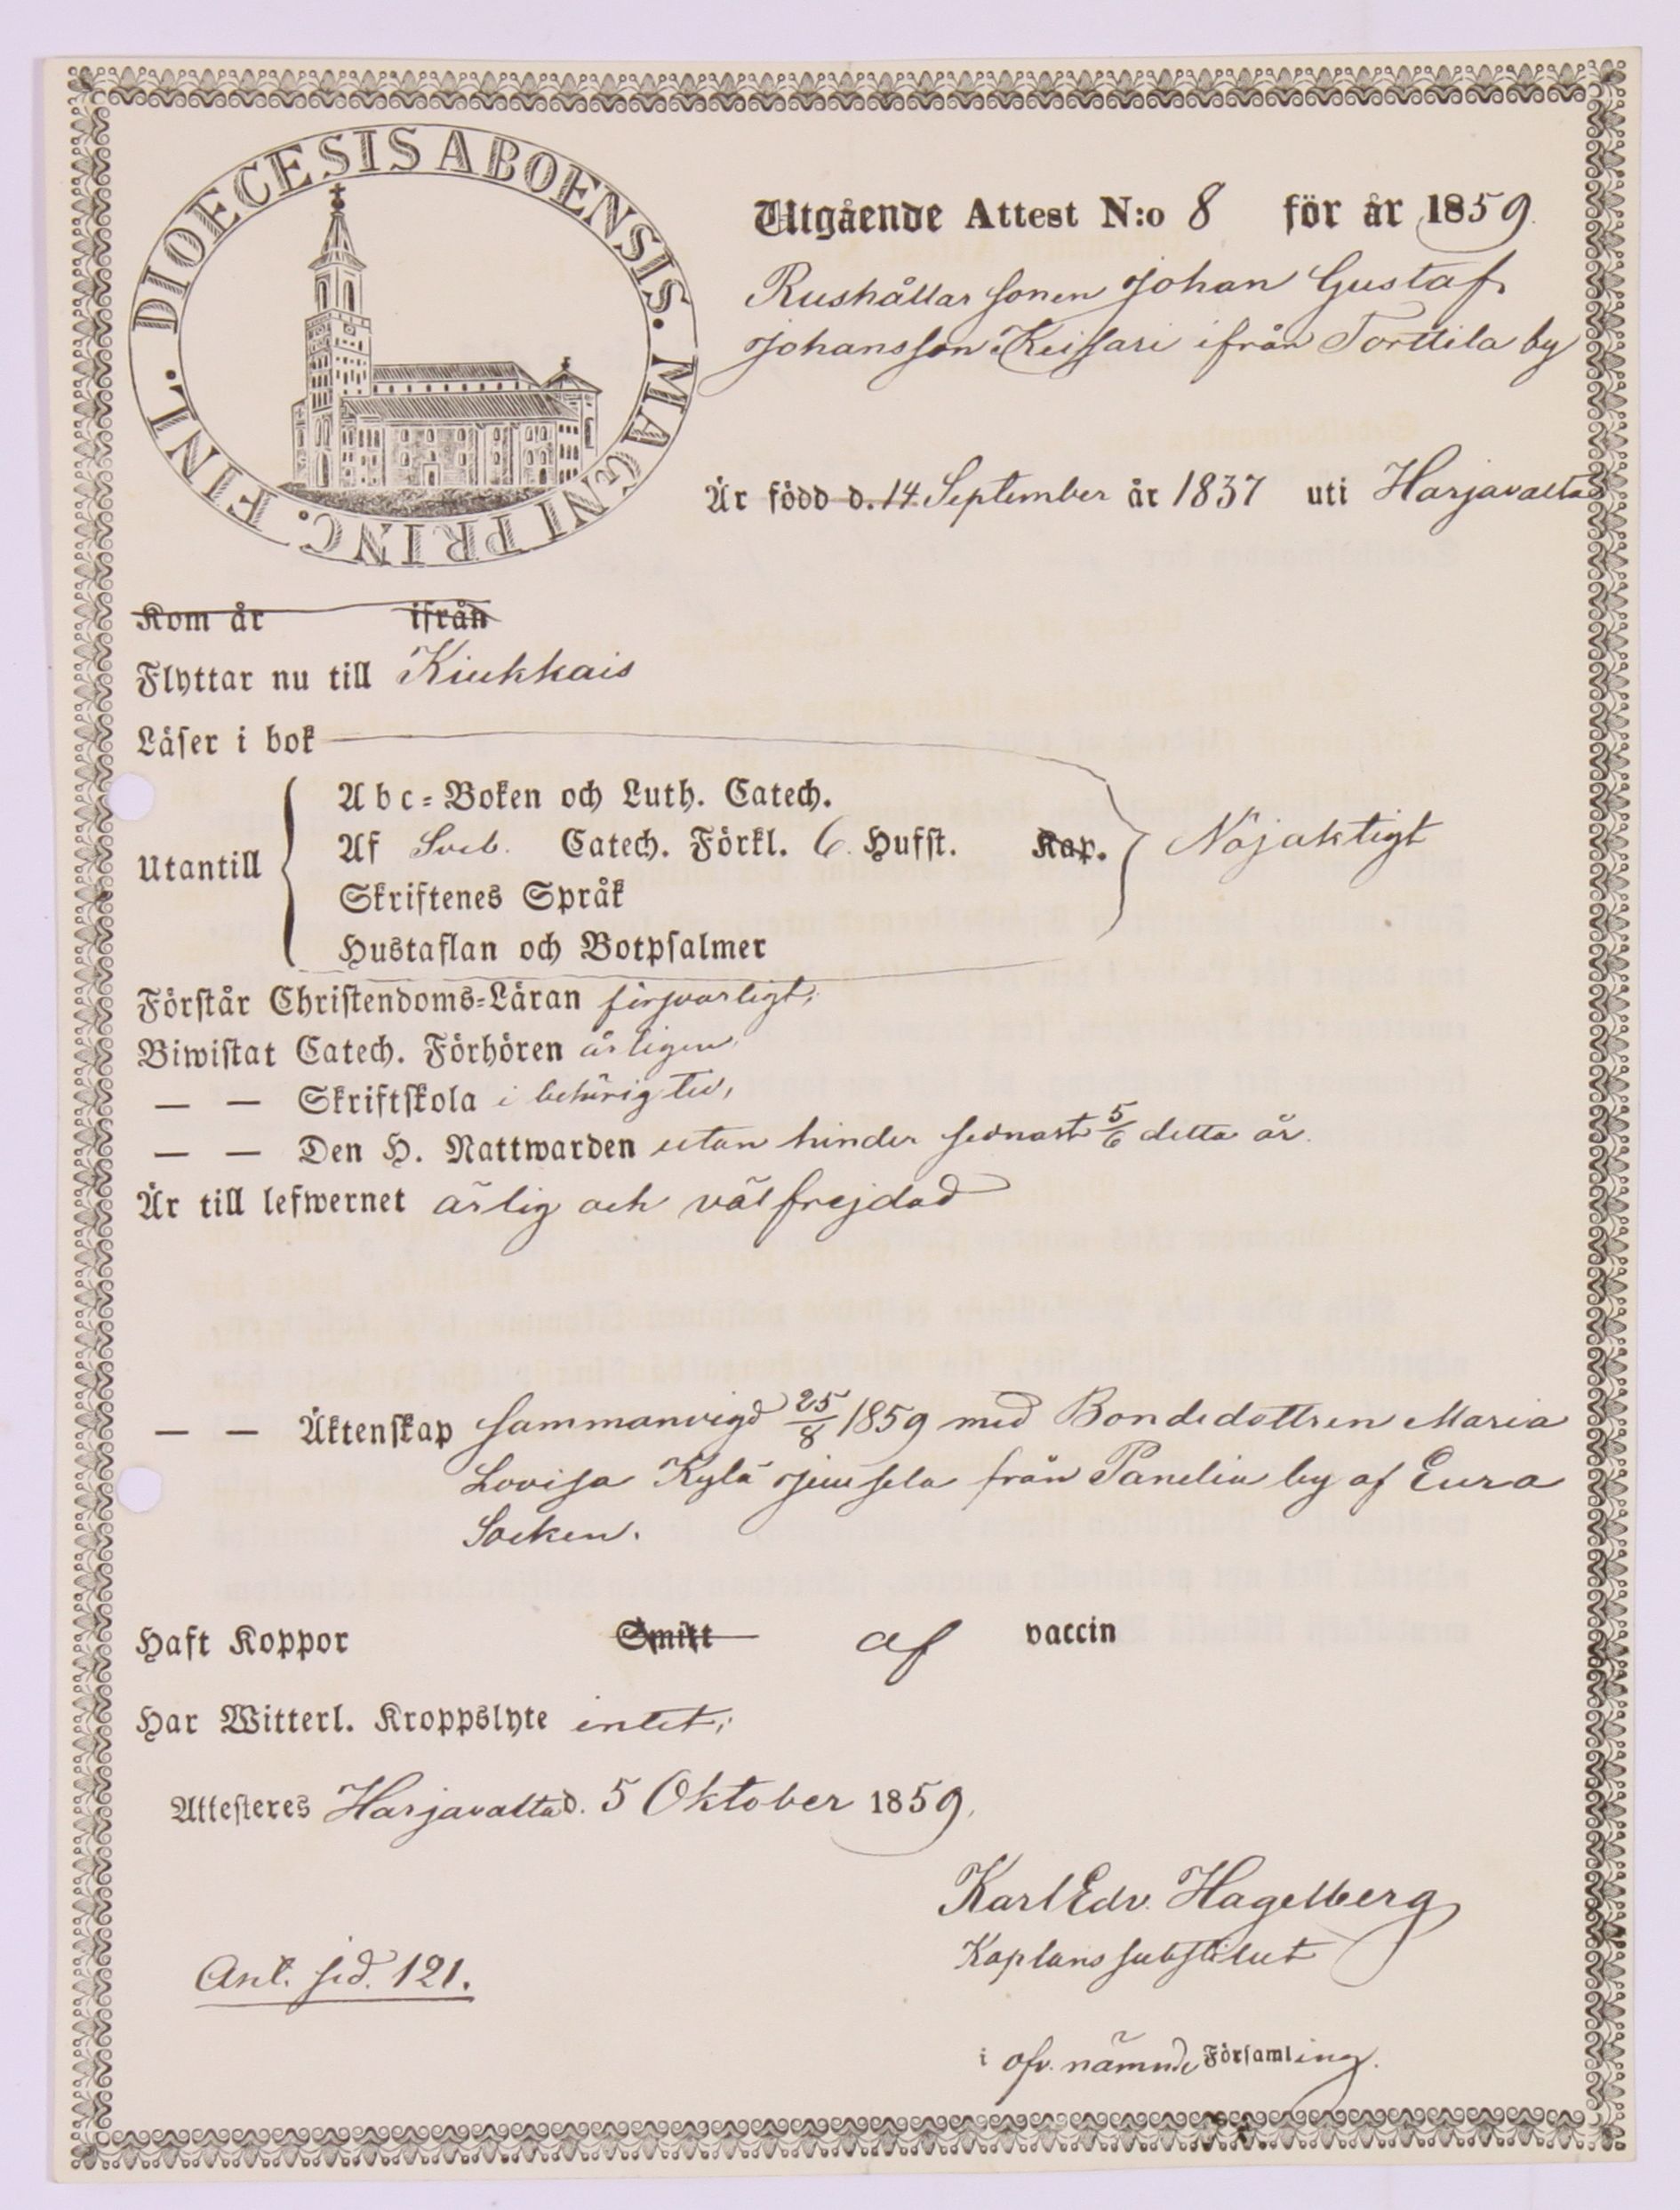 DIOECESIS ABOENSIS. MAGNI PRINC. FINL.
Utgående Attest N:o 8 för år 1859.
Rushållar sonen Johan Gustaf
Johansson Keissari ifrån Torttila by
Är född d. 14 September år 1837 uti Harjavalta
Kom år ifrån
Flyttar nu till Kiukkais
Läser i bok
Abc-Boken och Luth. Catech.
Utantill Af Sveb. Catech. Förkl. 6 Hufst. Kap. Nöjaktigt
Skriftenes Språk
Hustaflan och Botpsalmer
Förstår Christendoms-Läran försvarligt,
Biwistat Catech. Förhören årligen,
— — Skriftskola i behörig tid,
— — Den H. Nattwarden utan hinder sednast 5/6 detta år.
Är till lefwernet ärlig och välfrejdad
— — Äktenskap sammanvigd 25/8 1859 med Bondedottren Maria
Lovisa Kylä Jiuusela från Panelia by af Eura
Socken.
Haft Koppor Smitt af vaccin
Har Witterl. Kroppslyte intet;
Attesteres Harjavalta d. 5 Oktober 1859.
Karl Edv. Hagelberg
Kaplans substitut
Ant. sid. 121.
i ofv. nämnde Församling.